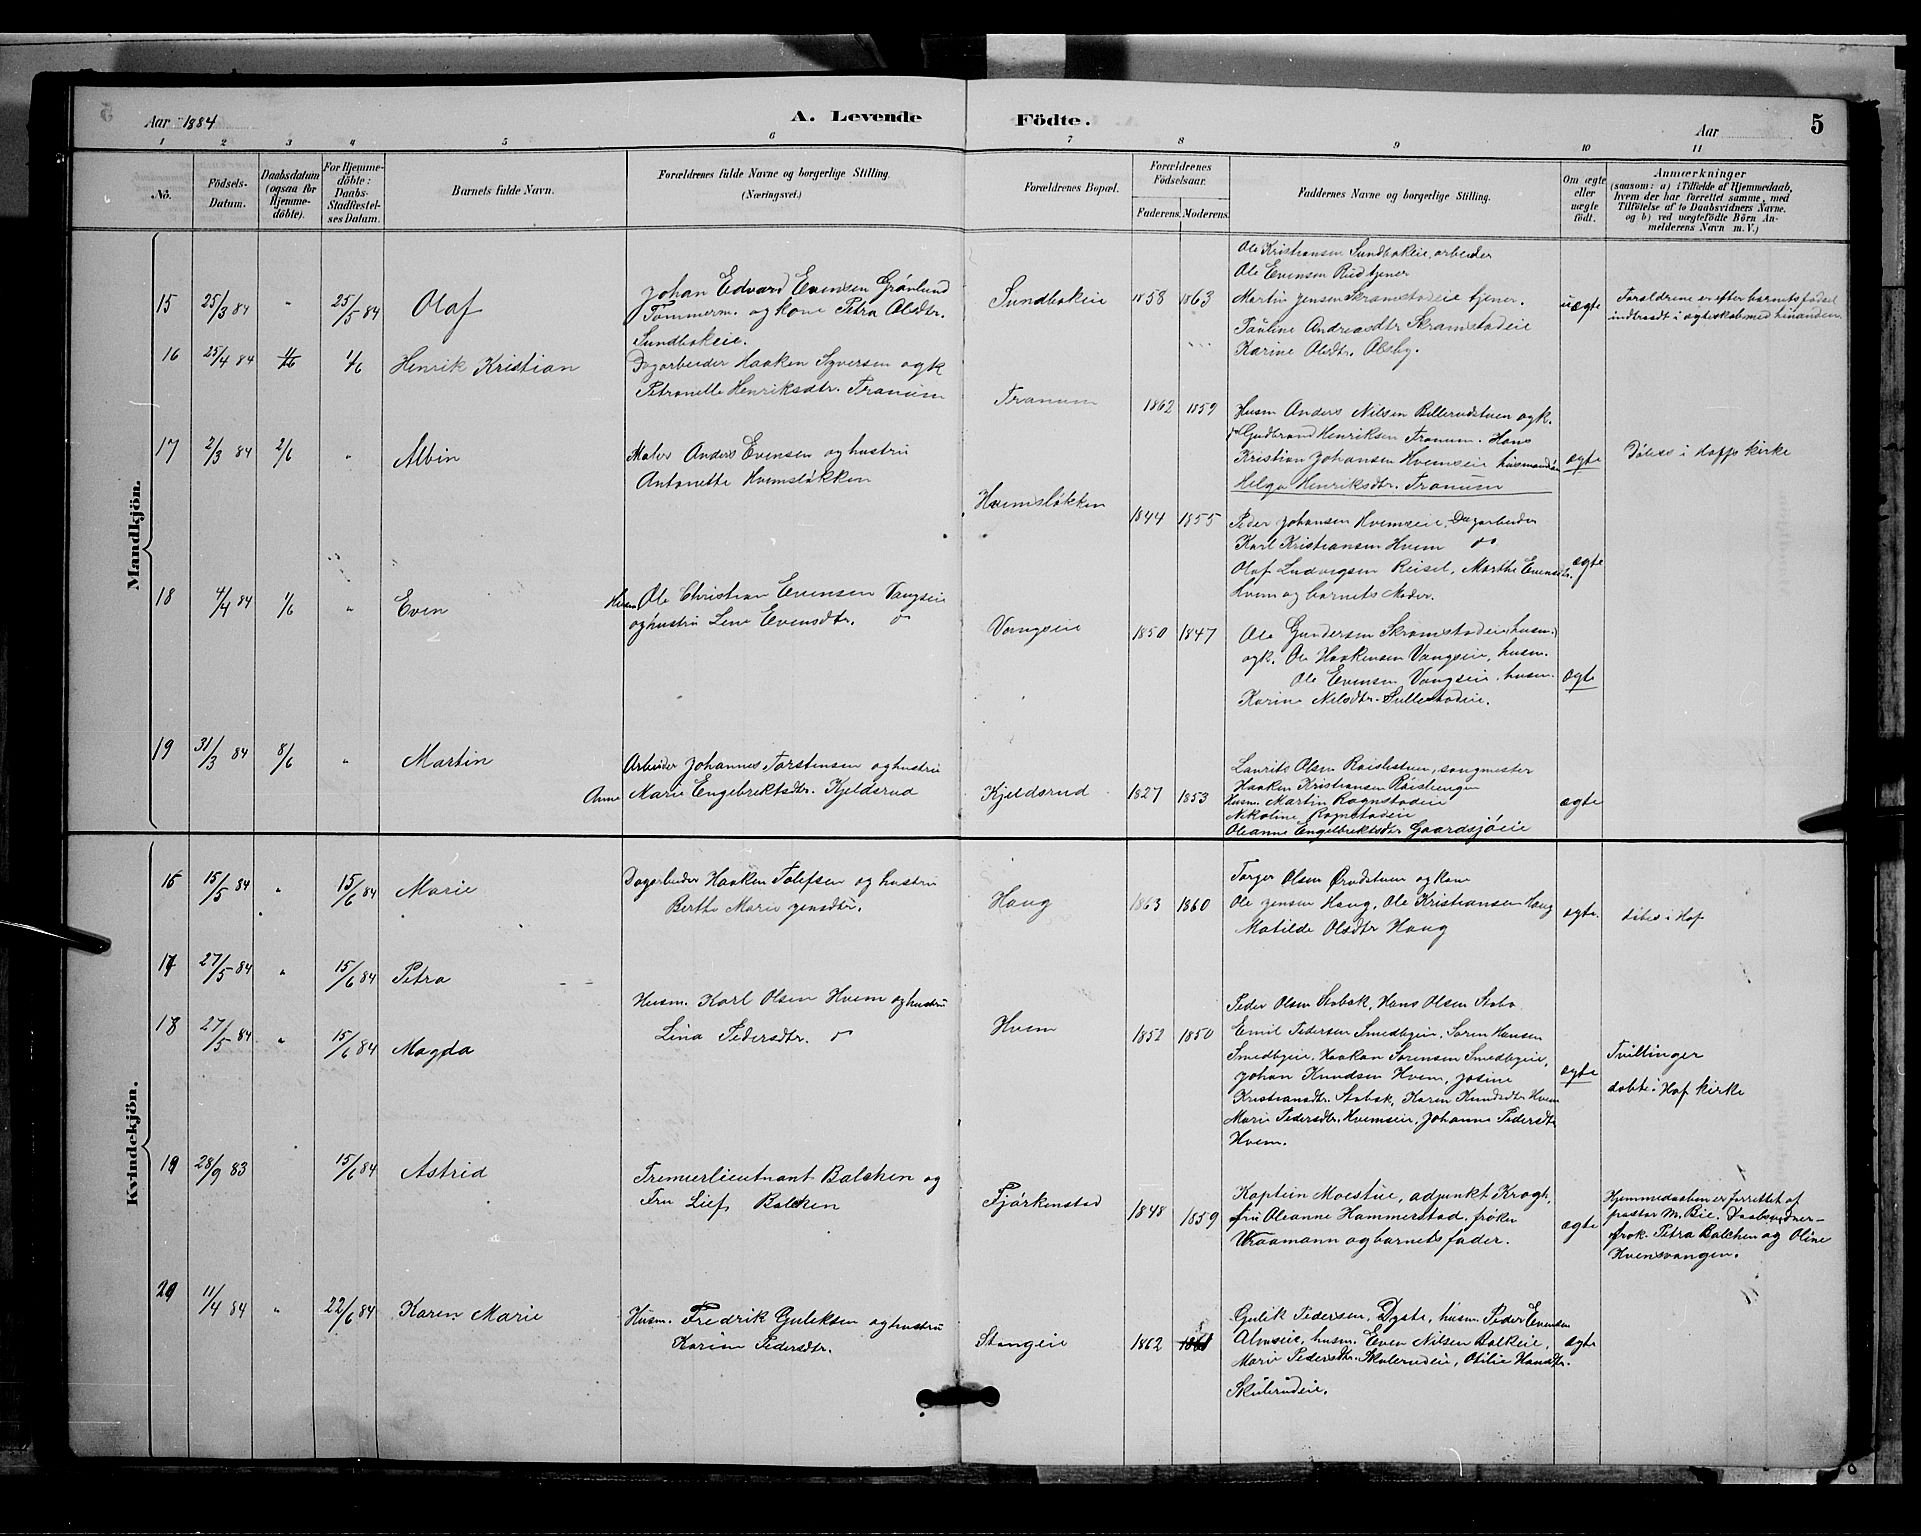 Aar 1884
A. Levende Födte.
Aar
5
1 2 3 4 5 6 7 8 9 10 11
No.
Födsels-Datum.
Daabsdatum (ogsaa for Hjemme-döbte).
For Hjemme-döbte: Daabs-Stadfæstel-ses Datum.
Barnets fulde Navn.
Forældrenes fulde Navne og borgerlige Stilling.
(Næringsvei.)
Forældrenes Bopæl.
Forældrenes Födselsaar.
Faderens. Moderens.
Faddernes Navne og borgerlige Stilling.
Om ægte eller uægte födt.
Anmærkninger
(saasom: a) i Tilfælde af Hjemmedaab,
hvem der har forrettet samme, med
Tilföielse af to Daabsvidners Navne.
og b) ved uægtefödte Börn An-
melderens Navn m. V.)
Mandkjön.
15 25/3 84 " 25/5 84 Olaf
Johan Edvard Evensen Grønlund
Tømmerm. og kone Petra Olsdtr.
Sundbokeie.
Sundbokeie 1858 1863
Ole Kristiansen Sundbokeie, arbeider
Ole Evensen Rud tjener
Martin Jensen Skramstadeie tjener.
Pauline Andreasdtr Skramstadeie
Karine Olsdtr. Alsby.
uægte
Forældrene er efter barnets fødsel
indtraadt i ægteskab med hinanden.
16 25/4 84 1/6 Henrik Kristian
Dagarbeider Haaken Syversen og k
Petronelle Henriksdtr. Tranum
Tranum 1862 1859
Husm Anders Nilsen Billerudstuen og k.
Gudbrand Henriksen Tranum. Hans
Kristian Johansen Hvemseie husmandsøn
Helga Henriksdtr. Tranum
ægte
Døbess i Hoffs kirke
17 2/3 84 2/6 " Albin
Maler Anders Evensen og hustru
Antonette Hvemsløkken
Hvemsløkken 1844 1855
Peder Johansen Hvemseie, Dagarbeider
Karl Kristiansen Hvem do
Olaf Ludvigsen Reisel, Marthe Evensdtr.
Hvem og barnets Moder.
ægte
18 4/4 84 1/6 " Even
Husm Ole Christian Evensen Vangseie
og hustru Lene Evensdtr. do
Vangseie 1850 1847
Ole Gundersen Skramstadeie husm.
og k. Ole Haakensen Vangseie, husm.
Ole Evensen Vangseie, husm.
Karine Nilsdtr. Sullestadeie.
ægte
19 31/3 84 8/6 " Martin
Arbeider Johannes Torstensen og hustru
Anne Marie Engebrektsdtr. Kjeldsrud
Kjeldsrud 1827 1853
Laurits Olsen Røislistuen, sangmester
Haaken Kristiansen Røisliengen
Husm. Martin Rognstadeie
Nikoline Rognstadeie
Oleanne Engelbrektsdtr Gaardsjøeie
ægte
Kvindekjön.
16 15/5 84 " 15/6 84 Marie
Dagarbeider Haaken Tolefsen og hustru
Berthe Marie Jensdtr.
Haug 1863 1860
Torger Olsen Ørudstuen og kone
Ole Jensen Haug, Ole Kristiansen Haug
Matilde Olsdtr Haug
ægte.
døbes i Hof
17 27/5 84 " 15/6 84 Petra
18 27/5 84 " 15/6 84 Magda
Husm. Karl Olsen Hvem og hustru
Lina Pedersdtr. do
Hvem 1852 1850
Peder Olsen Stabak, Hans Olsen Stabo
Emil Pedersen Smedbyeie, Søren Hansen
Smedbyeie, Haakon Sørensen Smedbyeie,
Johan Knudsen Hvem, Josine
Kristiansdtr. Stabak, Karen Knudsdtr Hvem
Marie Pedersdtr. Hvemseie, Johanne Pedersdtr
Hvem.
ægte
Tvillinger
døbte i Hof kirke
19 28/9 83 15/6 84 Astrid
Premierlieutnant Balchen og
Fru Lief Balchen
Fjørkenstad 1848 1859
Kaptein Moestue, adjunkt Krogh,
fru Oleanne Hammerstad, frøken
Vraamann og barnets fader.
ægte
Hjemmedaaben er forrettet af
pastor M. Bie. Daabsvidner
frøk. Petra Balchen og Oline
Hvensvangen.
20 11/4 84 " 22/6 84 Karen Marie
Husm. Fredrik Guliksen og hustru
Karine Pedersdtr.
Stangeie 1862 1861
Gulik Pedersen, Dyste, husm. Peder Evensen
Almseie, husm. Even Nilsen Balkeie,
Marie Pedersdtr. Skulerudeie, Otilie Hansdtr.
Skulerudeie.
ægte